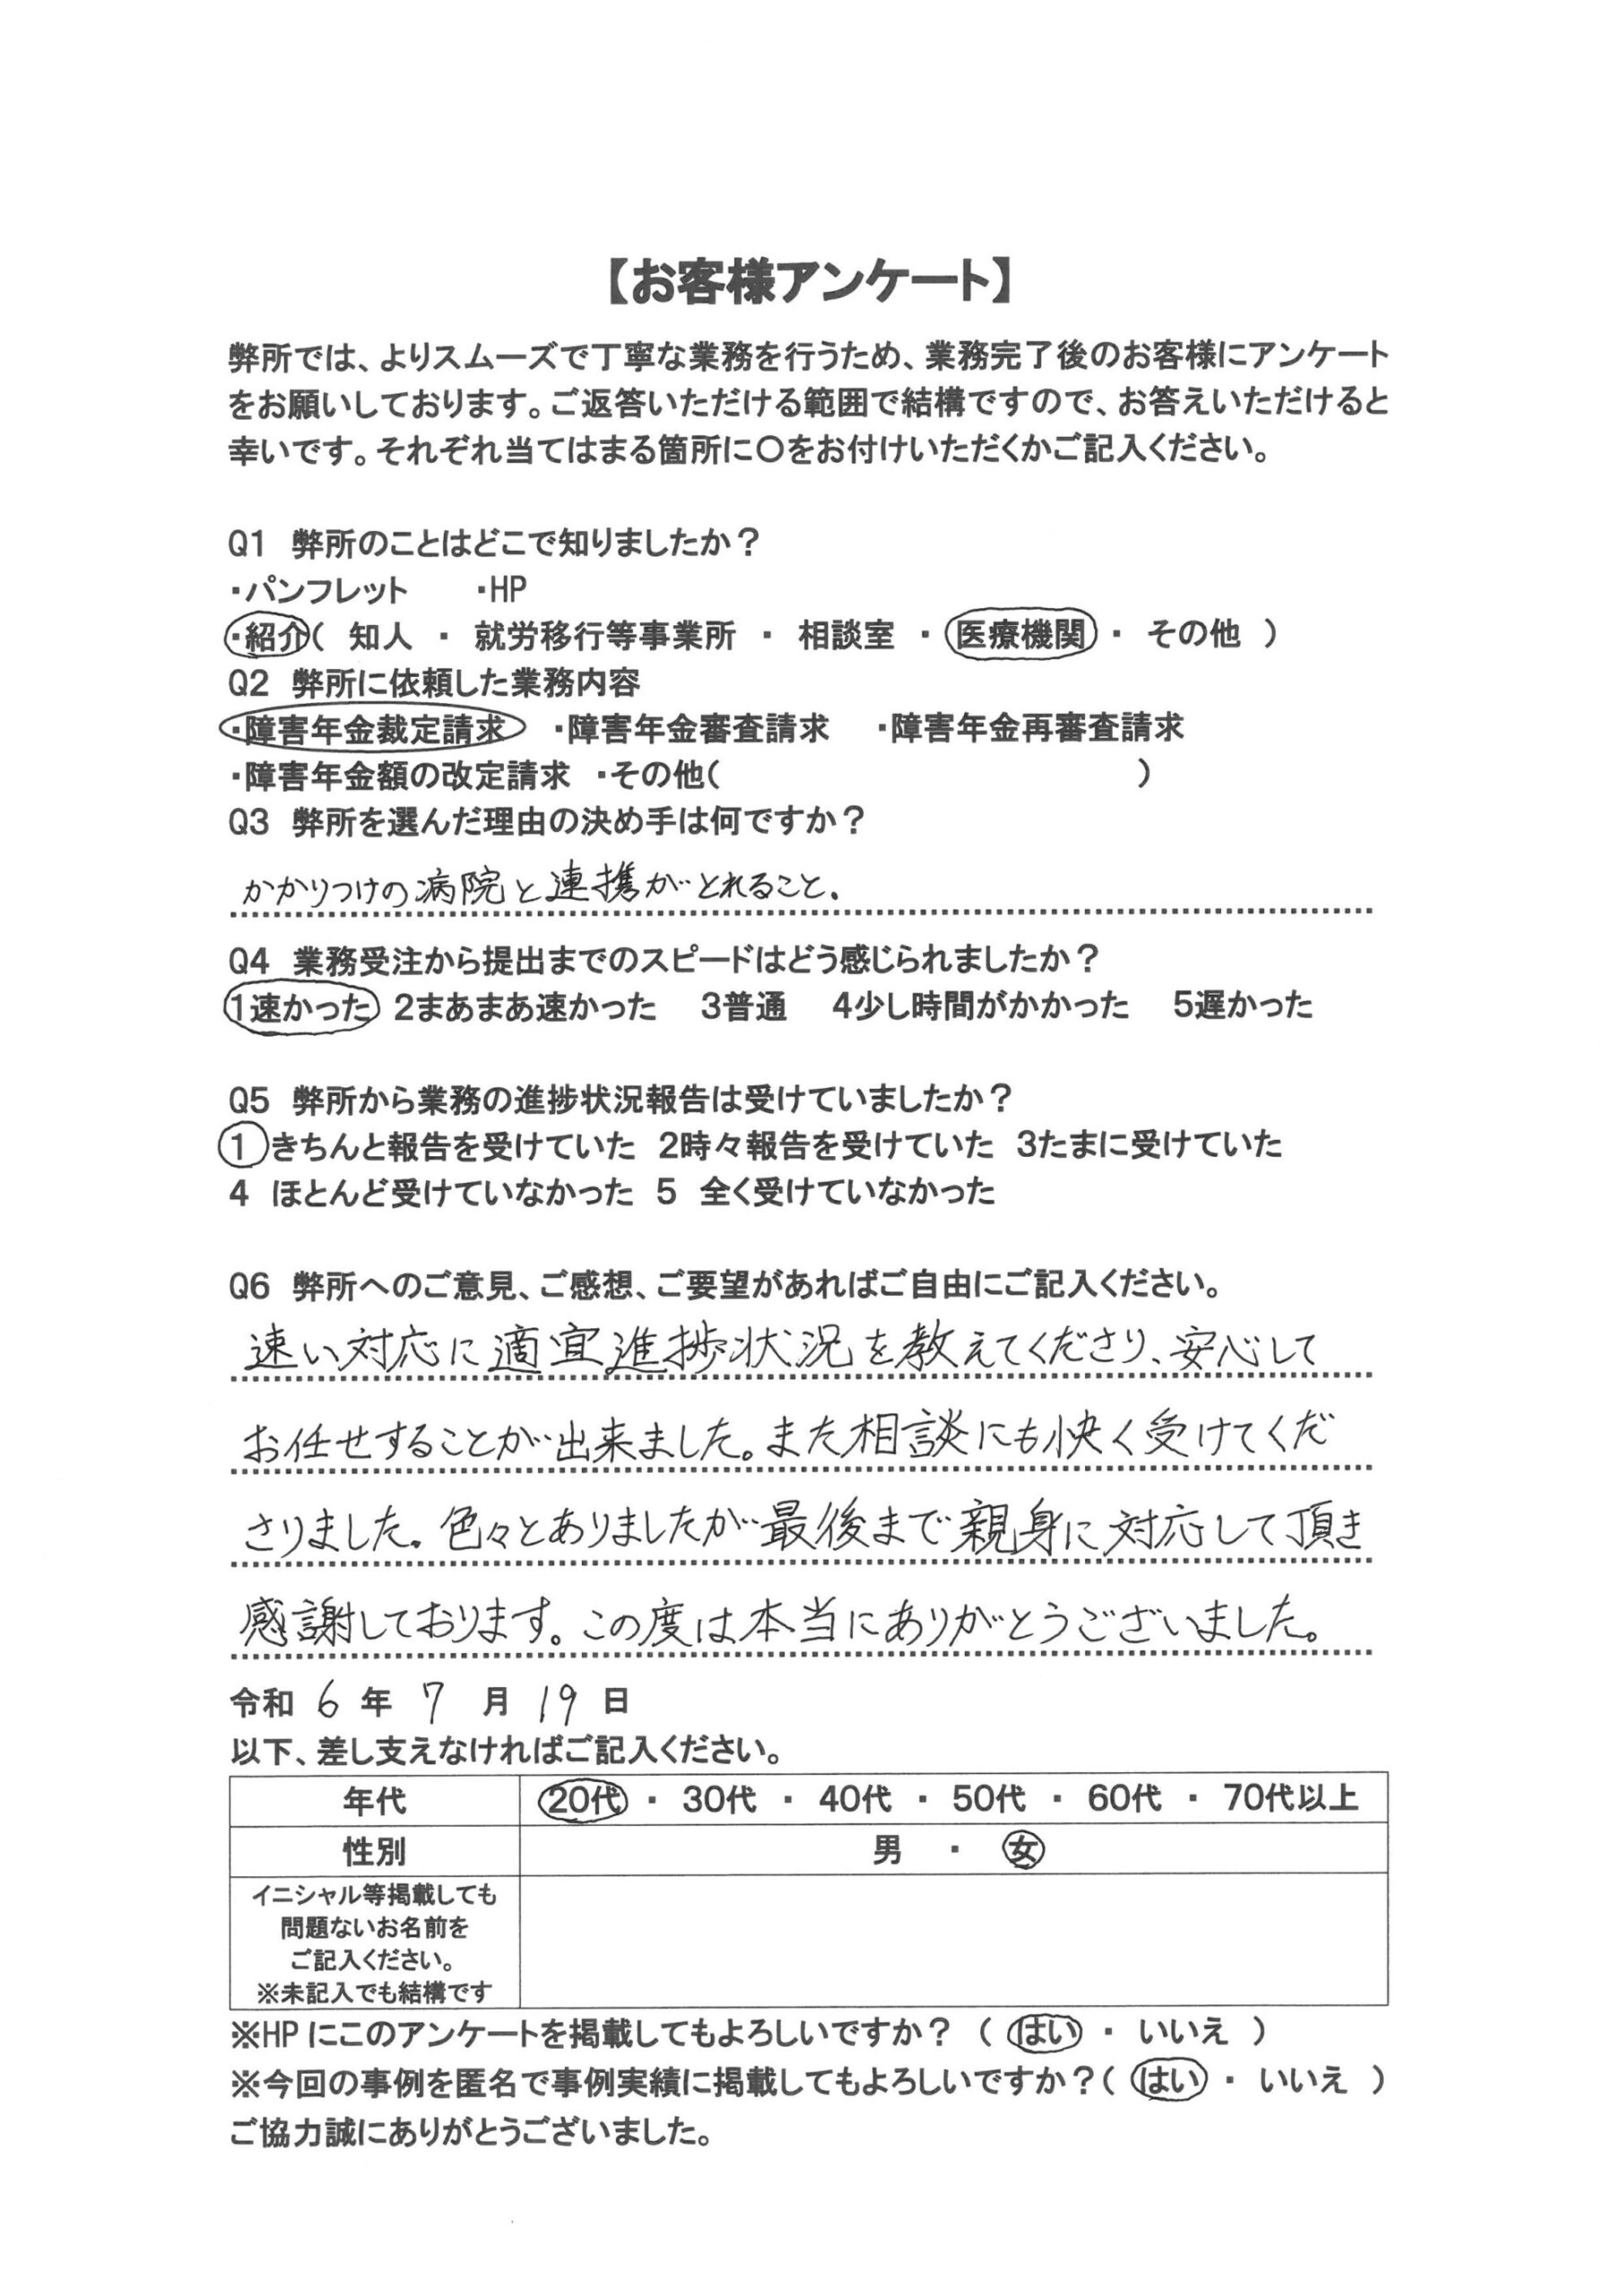 【お客様アンケート】
弊所では、よりスムーズで丁寧な業務を行うため、業務完了後のお客様にアンケート
をお願いしております。ご返答いただける範囲で結構ですので、お答えいただけると
幸いです。それぞれ当てはまる箇所に〇をお付けいただくかご記入ください。
Q1　弊所のことはどこで知りましたか？
・パンフレット　　・HP
・紹介（　知人　・　就労移行等事業所　・　相談室　・　医療機関　・　その他　）
Q2　弊所に依頼した業務内容
・障害年金裁定請求　・障害年金審査請求　・障害年金再審査請求
・障害年金額の改定請求　・その他（　　　　　　　　　　　　　）
Q3　弊所を選んだ理由の決め手は何ですか？
かかりつけの病院と連携がとれること。
Q4　業務受注から提出までのスピードはどう感じられましたか？
1速かった　2まあまあ速かった　3普通　4少し時間がかかった　5遅かった
Q5　弊所から業務の進捗状況報告は受けていましたか？
1　きちんと報告を受けていた　2時々報告を受けていた　3たまに受けていた
4　ほとんど受けていなかった　5　全く受けていなかった
Q6　弊所へのご意見、ご感想、ご要望があればご自由にご記入ください。
速い対応に適宜進捗状況を教えてくださり、安心して
お任せすることが出来ました。また相談にも快く受けてくだ
さりました。色々とありましたが最後まで親身に対応して頂き
感謝しております。この度は本当にありがとうございました。
令和 6 年 7 月 19 日
以下、差し支えなければご記入ください。
年代　20代　・　30代　・　40代　・　50代　・　60代　・　70代以上
性別　男　・　女
イニシャル等掲載しても
問題ないお名前を
ご記入ください。
※未記入でも結構です
※HPにこのアンケートを掲載してもよろしいですか？（　はい　・　いいえ　）
※今回の事例を匿名で事例実績に掲載してもよろしいですか？（　はい　・　いいえ　）
ご協力誠にありがとうございました。